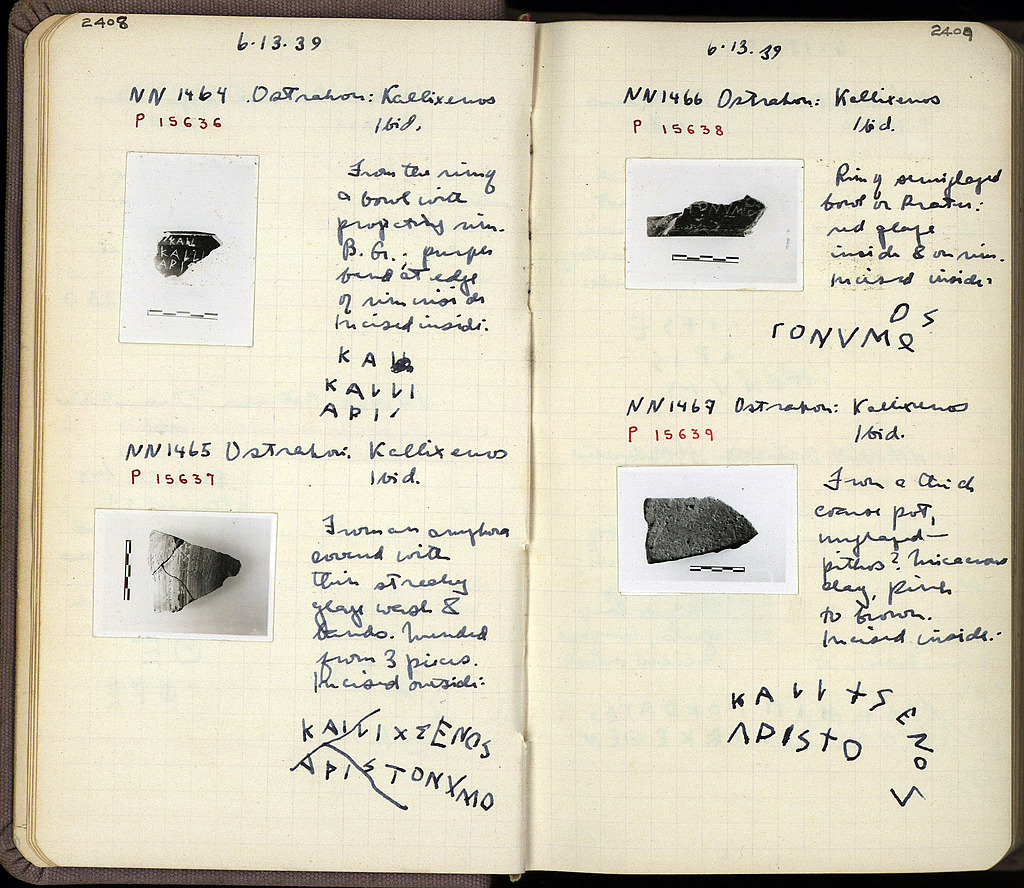 2408
6·13·39
NN 1464 Ostrakon: Kallixenos
P 15636 Ibid.
From the rim of
a bowl with
projecting rim.
B. G.; purple
band at edge
of rim inside
Incised inside:
KAL
KALLI
API
NN1465 Ostrakon. Kallixenos
P 15637 Ibid.
From an amphora
covered with
thin streaky
glaze wash &
bands. Mended
from 3 pieces.
Incised outside:
KALLIXSENOS
APISTONYMO
2409
6·13·39
NN1466 Ostrakon: Kallixenos
P 15638 Ibid.
Rim of semiglazed
bowl or krater:
red glaze
inside & on rim.
Incised inside:
OS
TONVMO
NN1467 Ostrakon: Kallixenos
P 15639 Ibid.
From a thick
coarse pot,
unglazed—
pithos? Micaceous
clay, pink
to brown.
Incised inside:
KALLXSENOS
APISTO